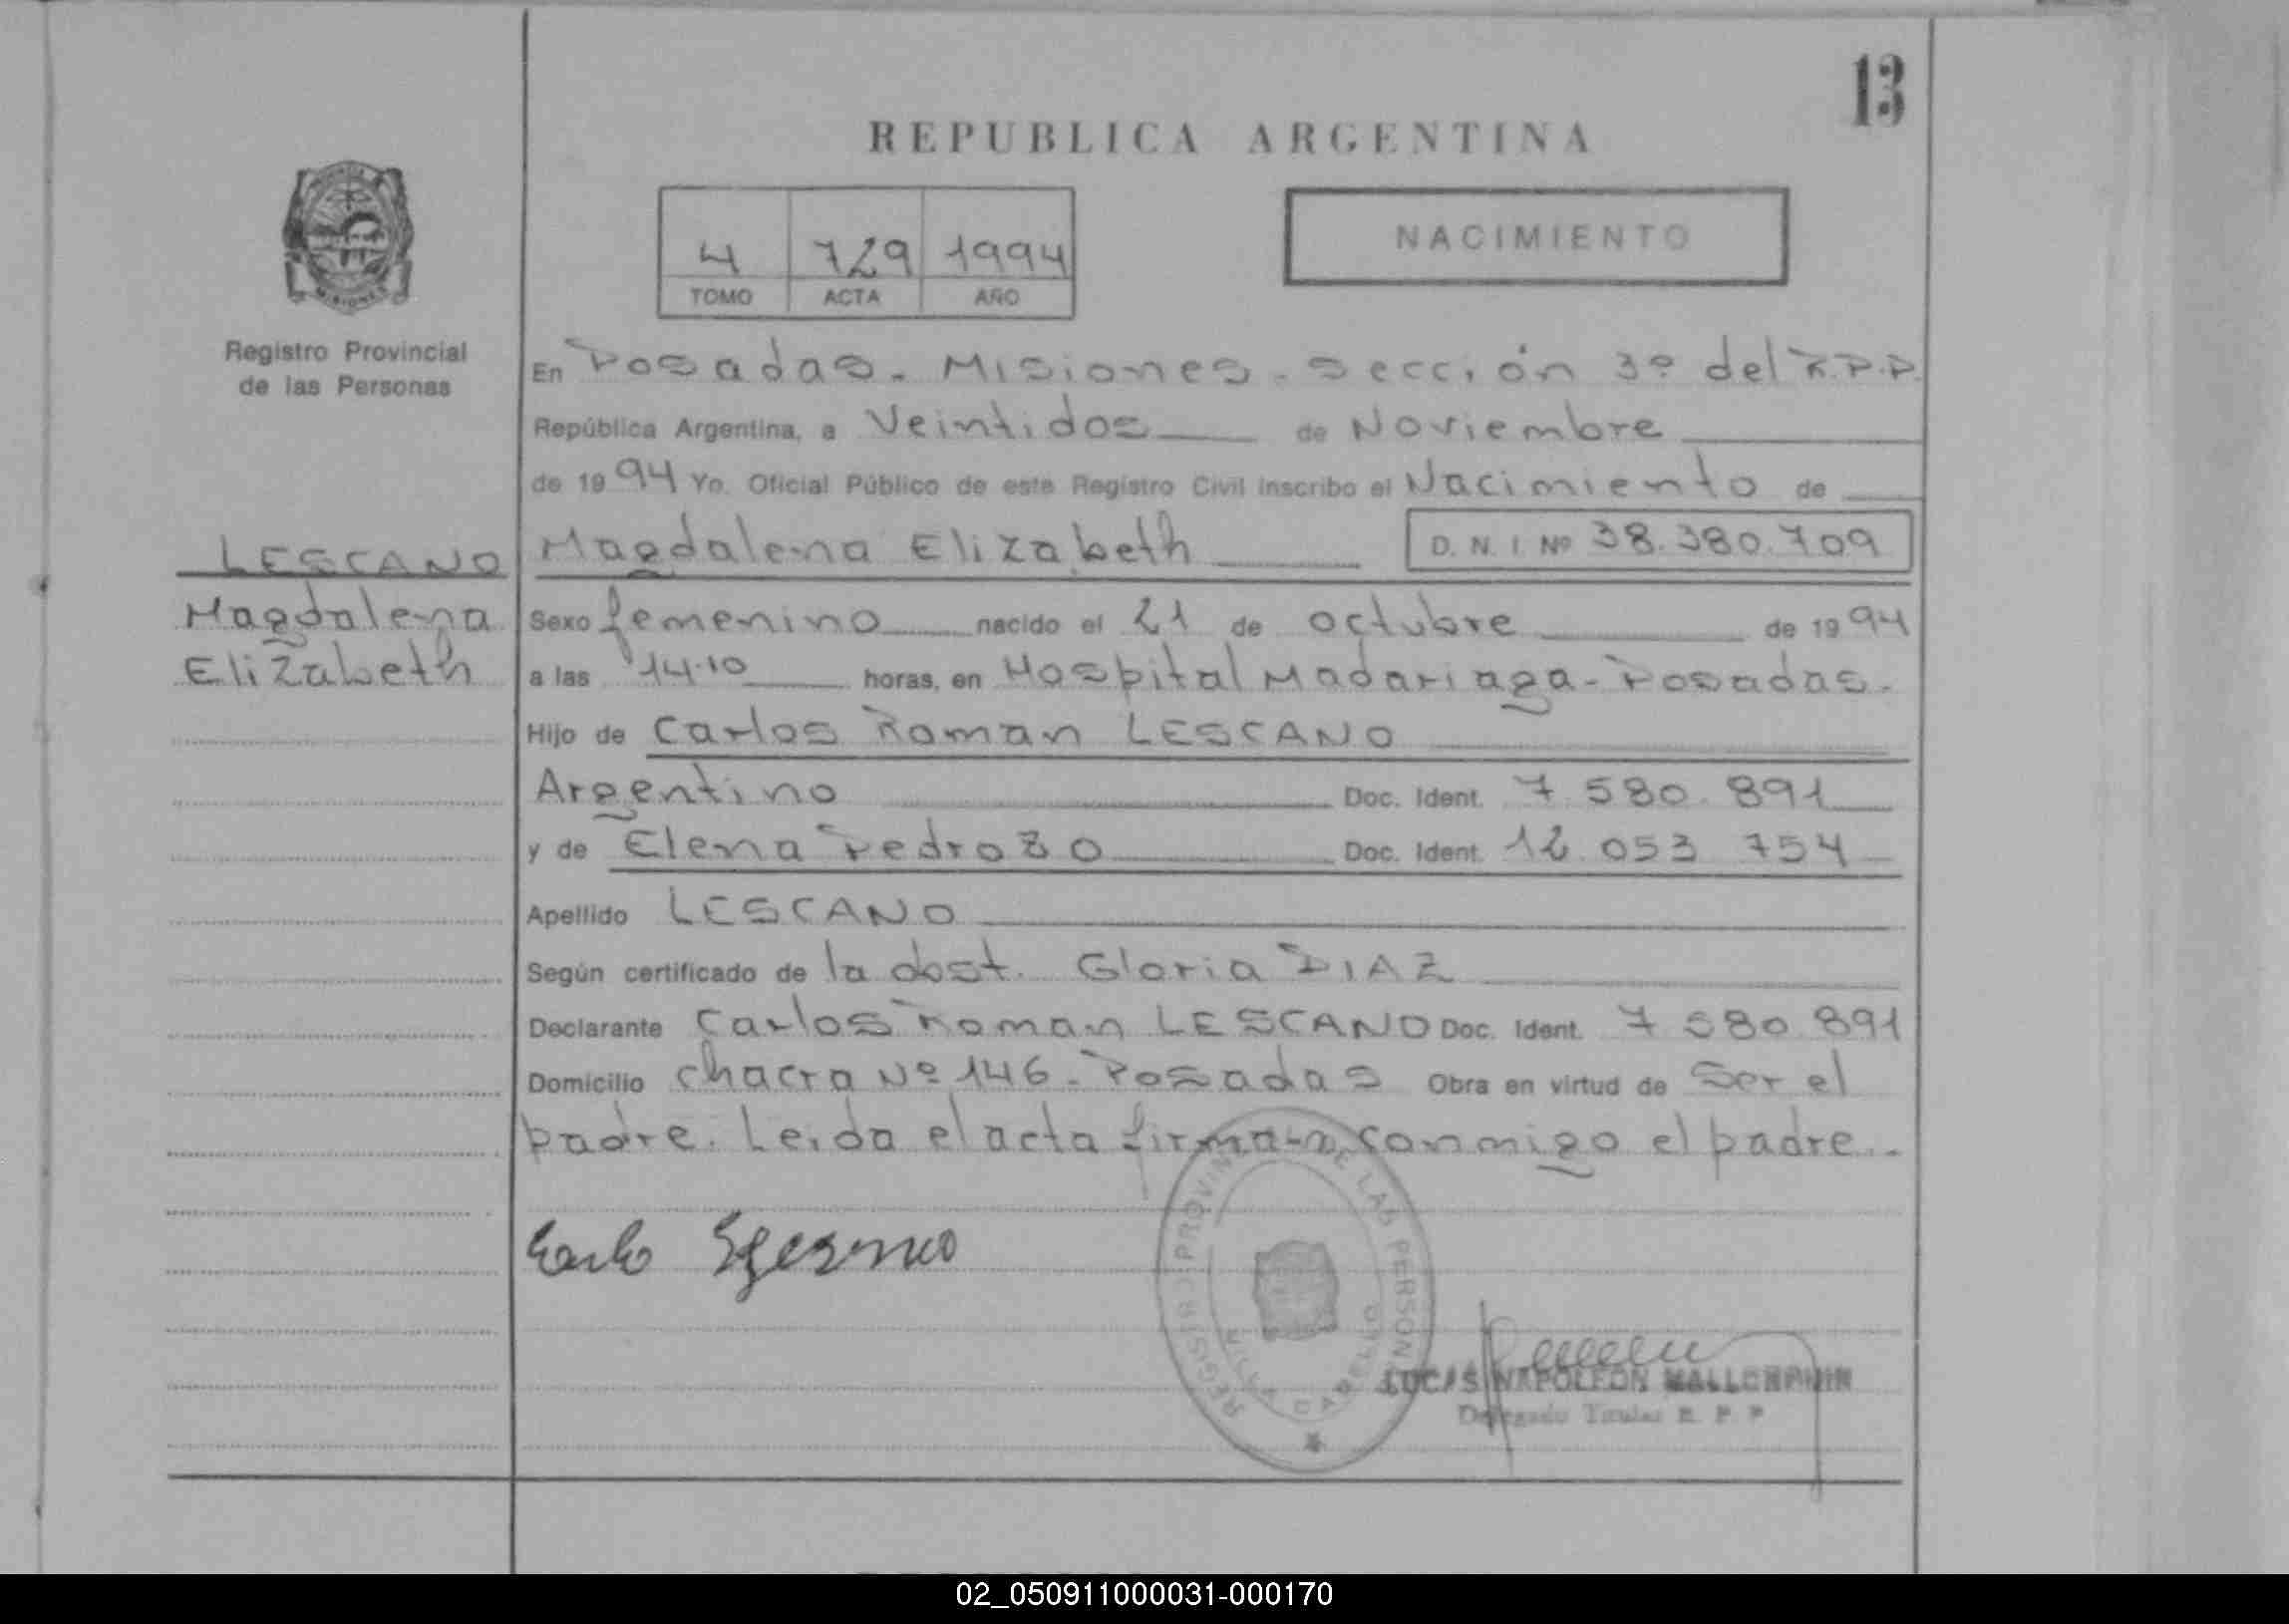 13
REPUBLICA ARGENTINA
4 729 1994
TOMO ACTA AÑO
NACIMIENTO
MISIONES
Registro Provincial
de las Personas
LESCANO
Magdalena
Elizabeth
En Posadas. Misiones. Sección 3º del R.P.P.
República Argentina, a Veintidos de Noviembre
de 1994 Yo. Oficial Público de este Registro Civil inscribo el Nacimiento de
Magdalena Elizabeth D. N. I. Nº 38.380.709
Sexo femenino nacido el 21 de octubre de 1994
a las 14.10 horas, en Hospital Madariaga - Posadas.
Hijo de Carlos Roman LESCANO
Argentino Doc. Ident. 7.580.891
y de Elena Pedrozo Doc. Ident. 12.053.754
Apellido LESCANO
Según certificado de la obst. Gloria DIAZ
Declarante Carlos Roman LESCANO Doc. Ident. 7 580 891
Domicilio chacra Nº 146 - Posadas Obra en virtud de Ser el
padre. Leida el acta firman conmigo el padre.-
REGISTRO PROVINCIAL DE LAS PERSONAS
LUCAS NAPOLEON
Delegado Titular R. P. P
02_050911000031-000170